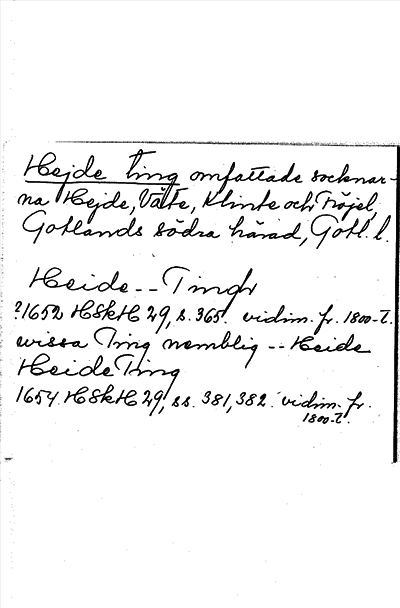 Hejde ting omfattade socknar-
na Hejde, Väte, Klinte och Fröjel,
Gotlands södra härad, Gotl. l.
Heide -- Tingr
?1652 HSkH 29, s. 365. vidim. fr. 1800-t.
wissa Ting nemblig -- Heide
Heide Ting
1654 HSkH 29, ss. 381, 382. vidim. fr.
1800-t.